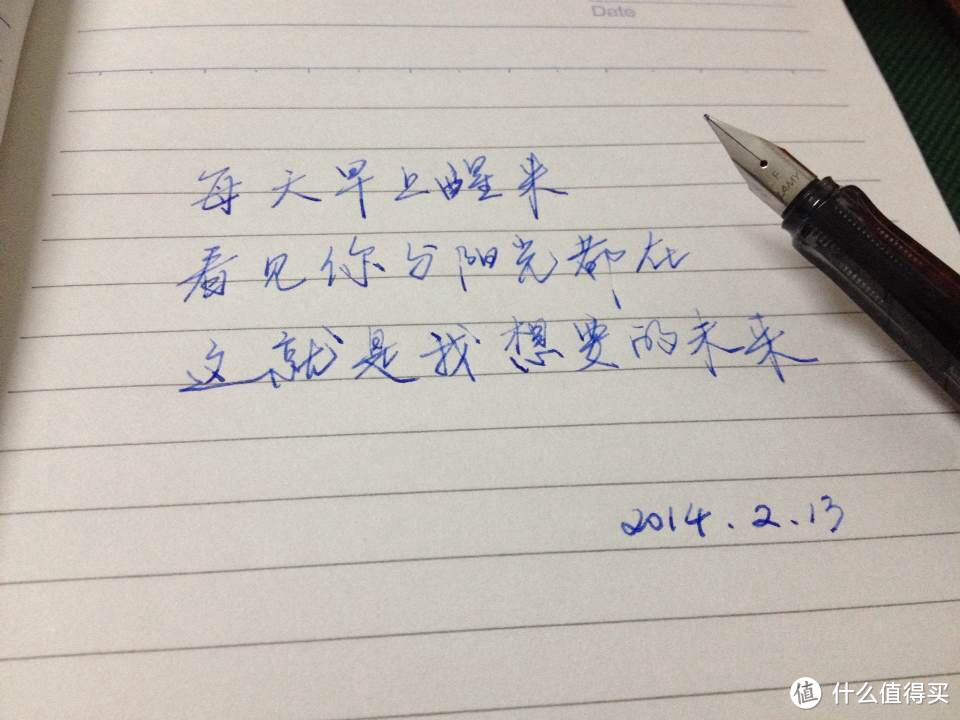 Date
每天早上醒来
看见你与阳光都在
这就是我想要的未来
2014.2.13
F
LAMY
值 什么值得买